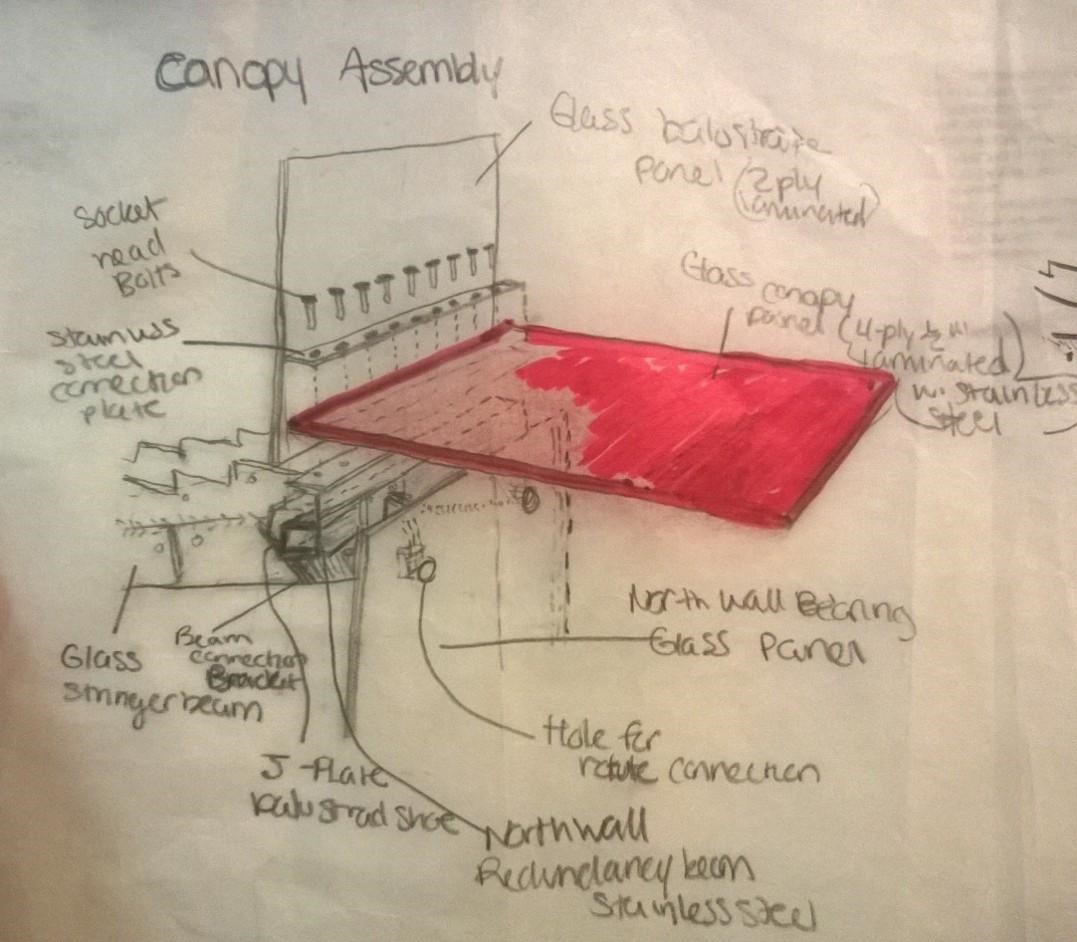 Canopy Assembly
Glass balustrate
panel (2 ply
laminated)
Socket
head
Bolts
Glass canopy
panel (4-ply
laminated)
w. Stainless
Steel
Stainless
steel
connection
plate
North Wall Bearing
Glass Panel
Beam
connection
Bracket
Glass
stringer beam
Hole for
rotule connection
J-Plate
balustrad shoe
North wall
Redundancy beam
Stainless steel